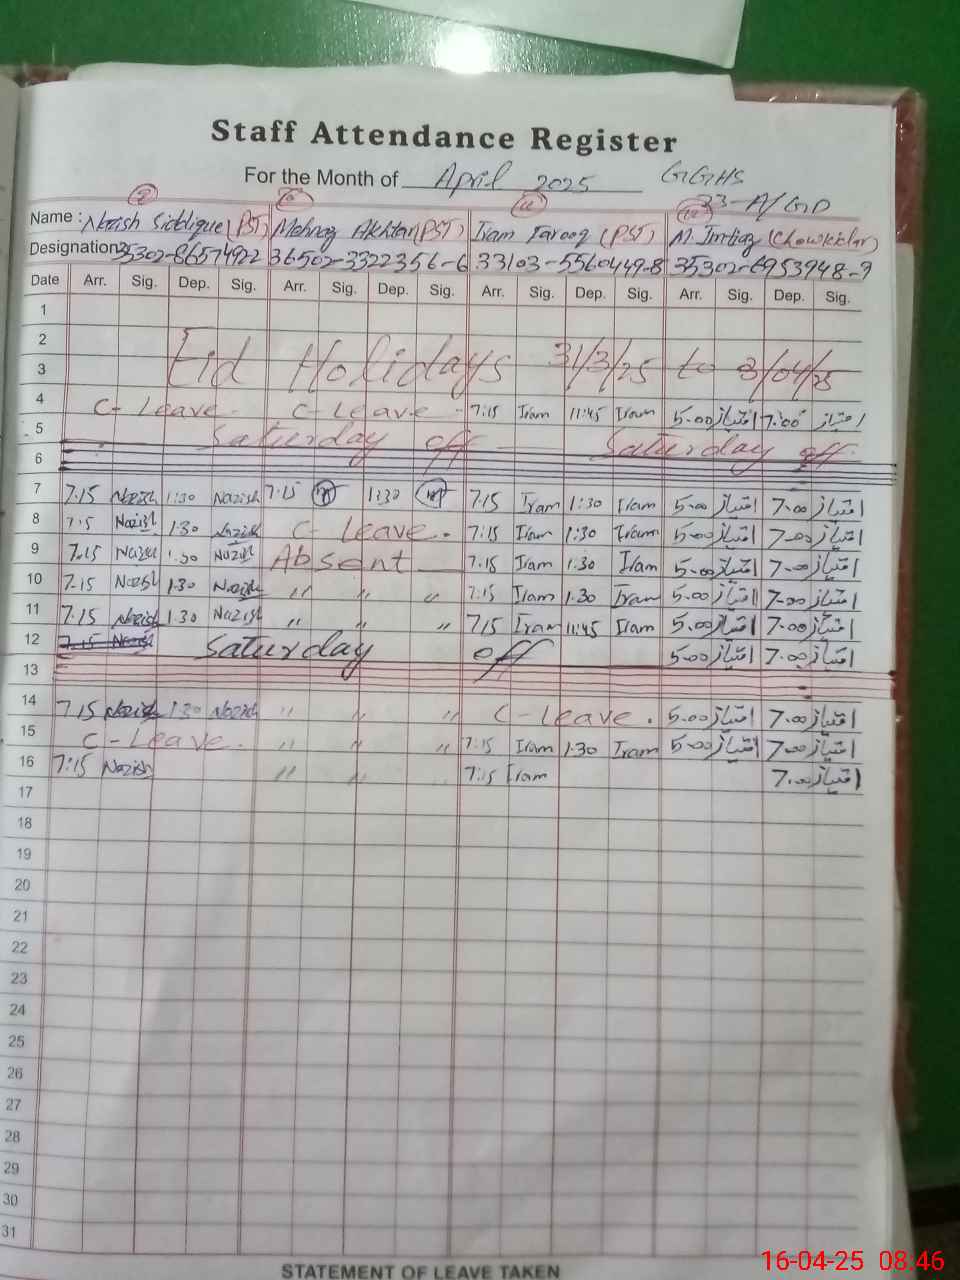 Staff Attendance Register
For the Month of April 2025 GGHS
33-A/GD
9 10 11 12
Name : Nazish Siddique (PST) Mehnaz Akhtar (PST) Iram Farooq (PST) M. Imtiaz (Chowkidar)
Designation 35302-8657492-2 36502-3322356-6 33103-5560449-8 35302-6953948-9
Date Arr. Sig. Dep. Sig. Arr. Sig. Dep. Sig. Arr. Sig. Dep. Sig. Arr. Sig. Dep. Sig.
1
2 Eid Holidays 31/3/25 to 3/04/25
3
4 C-Leave. C-Leave - 7:15 Iram 11:45 Iram 5.00 امتیاز 7:00 امتیاز
5 Saturday off Saturday off.
6
7 7.15 Nazish 1:30 Nazish 7:15 1:30 7.15 Iram 1:30 Iram 5.00 امتیاز 7.00 امتیاز
8 7:15 Nazish 1:30 Nazish C-Leave. 7:15 Iram 1:30 Iram 5.00 امتیاز 7.00 امتیاز
9 7.15 Nazish 1:30 Nazish Absent 7.15 Iram 1:30 Iram 5.00 امتیاز 7.00 امتیاز
10 7.15 Nazish 1:30 Nazish " " " 7:15 Iram 1:30 Iram 5.00 امتیاز 7.00 امتیاز
11 7:15 Nazish 1:30 Nazish " " " 7:15 Iram 11:45 Iram 5.00 امتیاز 7.00 امتیاز
12 7.15 Nazish Saturday off 5.00 امتیاز 7.00 امتیاز
13
14 7.15 Nazish 1:30 Nazish " " " C-Leave. 5.00 امتیاز 7.00 امتیاز
15 C-Leave. " " " 7:15 Iram 1:30 Iram 5.00 امتیاز 7.00 امتیاز
16 7:15 Nazish " " 7:15 Iram 7.00 امتیاز
17
18
19
20
21
22
23
24
25
26
27
28
29
30
31
STATEMENT OF LEAVE TAKEN
16-04-25 08:46